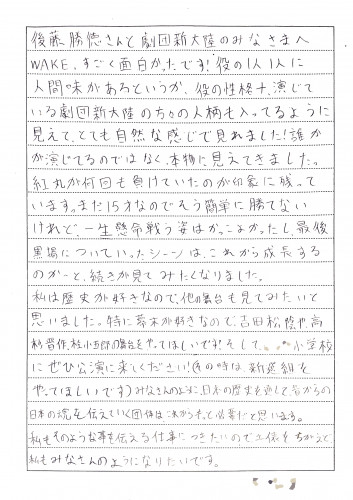 後藤勝徳さんと劇団新大陸のみなさまへ
WAKE、すごく面白かったです！役の1人1人に
人間味があるというか、役の性格＋、演じて
いる劇団新大陸の方々の人柄も入ってるように
見えて、とても自然な感じで見れました！誰か
が演じてるのではなく、本物に見えてきました。
紅丸が何回も負けていたのが印象に残って
います。まだ15才なのでそう簡単に勝てない
けれど、一生懸命戦う姿はかっこよかったし、最後
黒揚についていったシーンは、これから成長する
のかーと、続きが見てみたくなりました。
私は歴史が好きなので、他の舞台も見てみたいと
思いました。特に幕末が好きなので、吉田松陰や高
杉晋作、桂小五郎の舞台をやってほしいです！そして、小学校
にぜひ公演に来てください！(その時は、新選組を
やってほしいです)みなさんのように日本の歴史を通して、昔からの
日本の魂を伝えていく団体はこれからもっと必要だと思います。
私もそのような事を伝える仕事につきたいので立体をちがえど、
私もみなさんのようになりたいです。